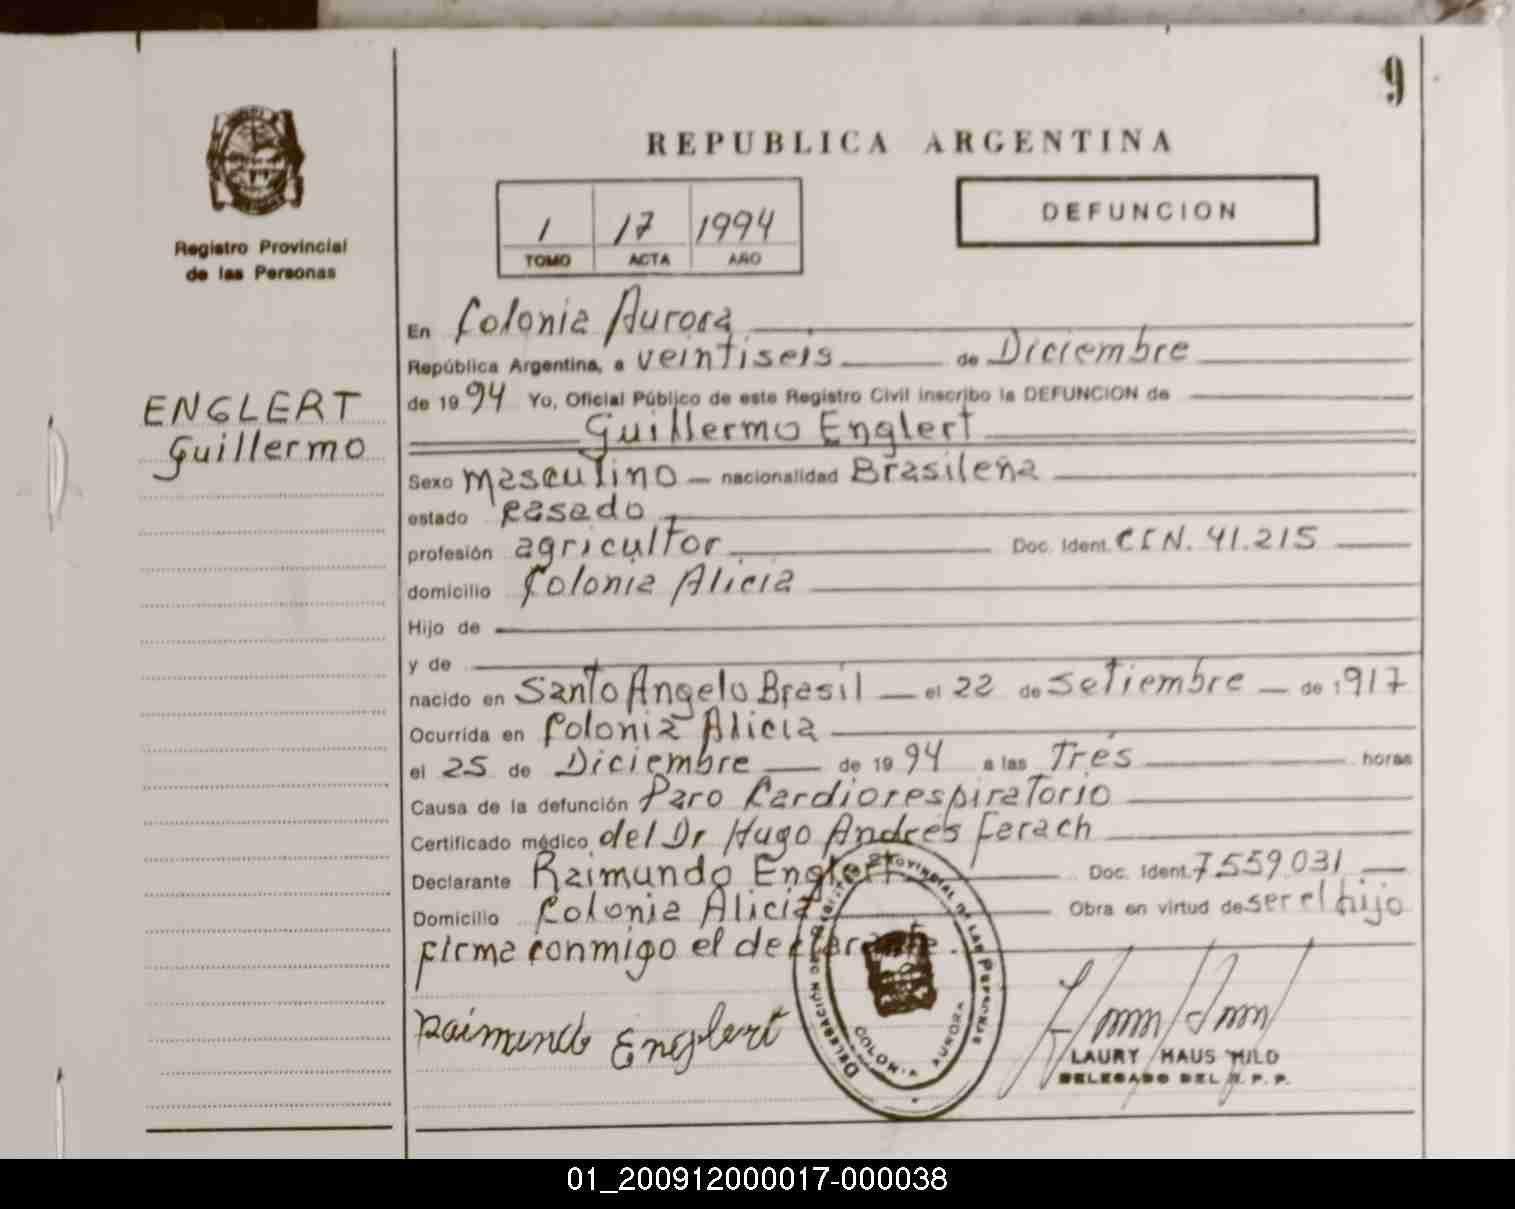 9
REPUBLICA ARGENTINA
1 17 1994
TOMO ACTA AÑO
DEFUNCION
Registro Provincial
de las Personas
ENGLERT
Guillermo
En Colonia Aurora
República Argentina, a veintiseis de Diciembre
de 1994 Yo, Oficial Público de este Registro Civil inscribo la DEFUNCION de
Guillermo Englert
Sexo masculino nacionalidad Brasileña
estado casado
profesión agricultor Doc. Ident. CIN. 41.215
domicilio Colonia Alicia
Hijo de
y de
nacido en Santo Angelo Brasil el 22 de Setiembre de 1917
Ocurrida en Colonia Alicia
el 25 de Diciembre de 1994 a las Tres horas
Causa de la defunción Paro Cardiorespiratorio
Certificado médico del Dr Hugo Andrés Ferach
Declarante Raimundo Englert Doc. Ident. 7.559.031
Domicilio Colonia Alicia Obra en virtud de ser el hijo
Firma conmigo el declarante.
Raimundo Englert
PROVINCIAL DE LAS PERSONAS
DELEGACION
COLONIA AURORA
LAURY HAUS HILD
DELEGADO DEL R. P. P.
01_200912000017-000038